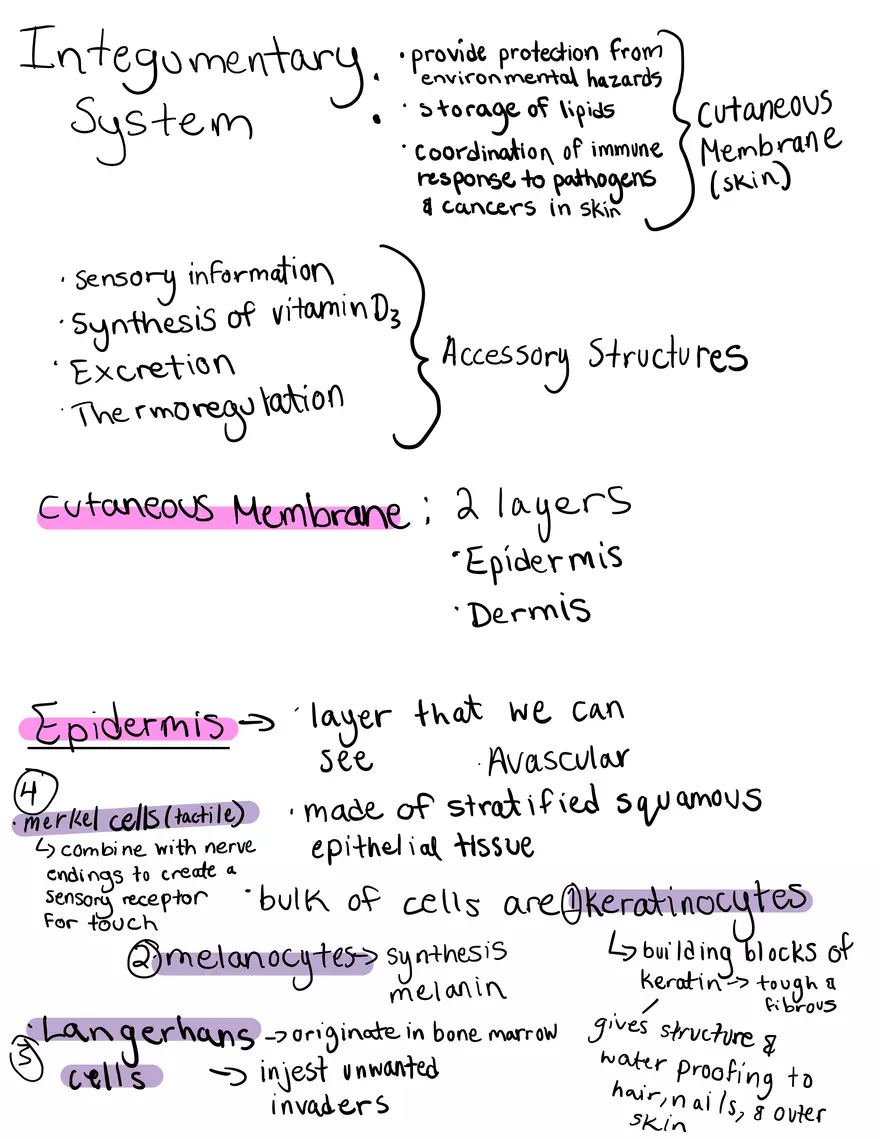 Integumentary
System :
· provide protection from
environmental hazards
· storage of lipids
· coordination of immune
response to pathogens
& cancers in skin
Cutaneous
Membrane
(skin)
· sensory information
· Synthesis of vitamin D3
· Excretion
· Thermoregulation
Accessory Structures
Cutaneous Membrane : 2 layers
· Epidermis
· Dermis
Epidermis → · layer that we can
see · Avascular
④
· merkel cells (tactile)
↳ combine with nerve
endings to create a
sensory receptor
for touch
· made of stratified squamous
epithelial tissue
· bulk of cells are ① keratinocytes
↳ building blocks of
keratin → tough &
fibrous
gives structure &
water proofing to
hair, nails, & outer
skin
② melanocytes → synthesis
melanin
③ · Langerhans
cells
→ originate in bone marrow
→ injest unwanted
invaders